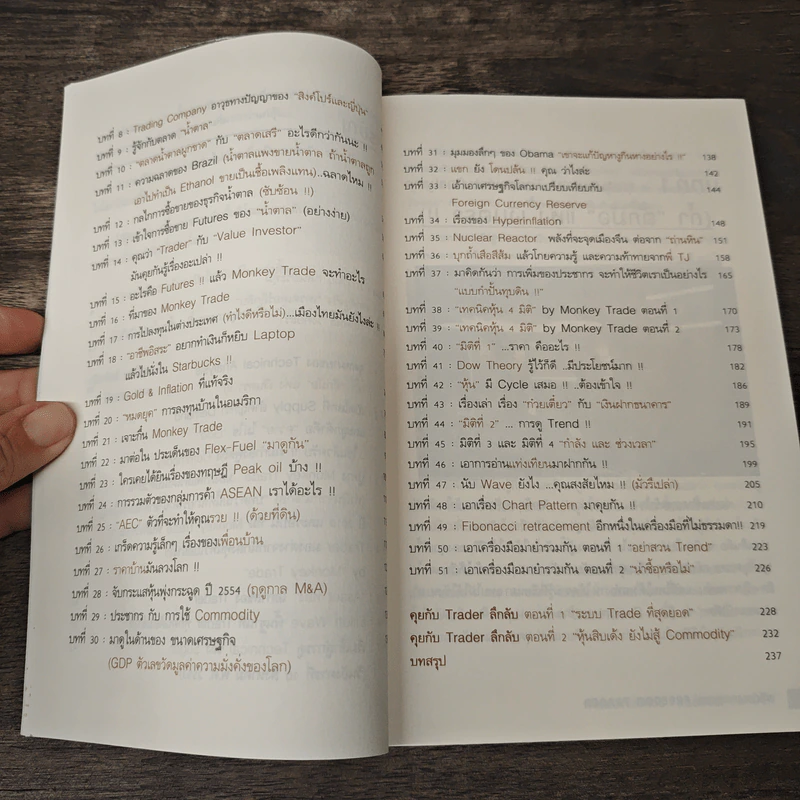 บทที่ 8 : Trading Company อาวุธทางปัญญาของ "สิงคโปร์และญี่ปุ่น"
บทที่ 9 : รู้จักกับตลาด "น้ำตาล"
บทที่ 10 : "ตลาดน้ำตาลผูกขาด" กับ "ตลาดเสรี" อะไรดีกว่ากันนะ !!
บทที่ 11 : ความฉลาดของ Brazil (น้ำตาลแพงขายน้ำตาล ถ้าน้ำตาลถูก
เอาไปทำเป็น Ethanol ขายเป็นเชื้อเพลิงแทน)..ฉลาดไหม !!
บทที่ 12 : กลไกการซื้อขายของธุรกิจน้ำตาล (ซับซ้อน !!)
บทที่ 13 : เข้าใจการซื้อขาย Futures ของ "น้ำตาล" (อย่างง่าย)
บทที่ 14 : คุณว่า "Trader" กับ "Value Investor"
มันคุยกันรู้เรื่องอะเปล่า !!
บทที่ 15 : อะไรคือ Futures !! แล้ว Monkey Trade จะทำอะไร
บทที่ 16 : ที่มาของ Monkey Trade
บทที่ 17 : การไปลงทุนในต่างประเทศ (ทำไงดีหรือไม่)...เมืองไทยมันยังไงล่ะ
บทที่ 18 : "อาชีพอิสระ" อยากทำเงินก็หยิบ Laptop
แล้วไปนั่งใน Starbucks !!
บทที่ 19 : Gold & Inflation ที่แท้จริง
บทที่ 20 : "หมดยุค" การลงทุนบ้านในอเมริกา
บทที่ 21 : เจาะกึ๋น Monkey Trade
บทที่ 22 : มาต่อใน ประเด็นของ Flex-Fuel "มาดูกัน"
บทที่ 23 : ใครเคยได้ยินเรื่องของทฤษฎี Peak oil บ้าง !!
บทที่ 24 : การรวมตัวของกลุ่มการค้า ASEAN เราได้อะไร !!
บทที่ 25 : "AEC" ตัวที่จะทำให้คุณรวย !! (ด้วยที่ดิน)
บทที่ 26 : เกร็ดความรู้เล็กๆ เรื่องของเพื่อนบ้าน
บทที่ 27 : ราคาบ้านมันลวงโลก !!
บทที่ 28 : จับกระแสหุ้นพุ่งกระฉูด ปี 2554 (ฤดูกาล M&A)
บทที่ 29 : ประชากร กับ การใช้ Commodity
บทที่ 30 : มาดูในด้านของ ขนาดเศรษฐกิจ
(GDP ตัวเลขวัดมูลค่าความมั่งคั่งของโลก)
บทที่ 31 : มุมมองลึกๆ ของ Obama "เขาจะแก้ปัญหางูกินหางอย่างไร !!" 138
บทที่ 32 : แขก ยัง โดนปล้น !! คุณ ว่าไงล่ะ 142
บทที่ 33 : เอ้าเอาเศรษฐกิจโลกมาเปรียบเทียบกับ 144
Foreign Currency Reserve
บทที่ 34 : เรื่องของ Hyperinflation 148
บทที่ 35 : Nuclear Reactor พลังที่จะจุดเมืองจีน ต่อจาก "ถ่านหิน" 151
บทที่ 36 : บุกถ้ำเสือสีส้ม แล้วโกยความรู้ และความท้าทายจากพี่ TJ 158
บทที่ 37 : มาคิดกันว่า การเพิ่มของประชากร จะทำให้ชีวิตเราเป็นอย่างไร 165
"แบบกำปั้นทุบดิน !!"
บทที่ 38 : "เทคนิคหุ้น 4 มิติ" by Monkey Trade ตอนที่ 1 170
บทที่ 39 : "เทคนิคหุ้น 4 มิติ" by Monkey Trade ตอนที่ 2 173
บทที่ 40 : "มิติที่ 1" ...ราคา คืออะไร !! 178
บทที่ 41 : Dow Theory รู้ไว้ก็ดี ..มีประโยชน์มาก !! 182
บทที่ 42 : "หุ้น" มี Cycle เสมอ !! ..ต้องเข้าใจ !! 186
บทที่ 43 : เรื่องเล่า เรื่อง "ก๋วยเตี๋ยว" กับ "เงินฝากธนาคาร" 189
บทที่ 44 : "มิติที่ 2" ... การดู Trend !! 191
บทที่ 45 : มิติที่ 3 และ มิติที่ 4 "กำลัง และ ช่วงเวลา" 195
บทที่ 46 : เอาการอ่านแท่งเทียนมาฝากกัน !! 199
บทที่ 47 : นับ Wave ยังไง ...คุณสงสัยไหม !! (มั่วรึเปล่า) 205
บทที่ 48 : เอาเรื่อง Chart Pattern มาคุยกัน !! 210
บทที่ 49 : Fibonacci retracement อีกหนึ่งในเครื่องมือที่ไม่ธรรมดา!! 219
บทที่ 50 : เอาเครื่องมือมายำรวมกัน ตอนที่ 1 "อย่าสวน Trend" 223
บทที่ 51 : เอาเครื่องมือมายำรวมกัน ตอนที่ 2 "น่าซื้อหรือไม่" 226
คุยกับ Trader ลึกลับ ตอนที่ 1 "ระบบ Trade ที่สุดยอด" 228
คุยกับ Trader ลึกลับ ตอนที่ 2 "หุ้นสิบเด้ง ยังไม่สู้ Commodity" 232
บทสรุป 237